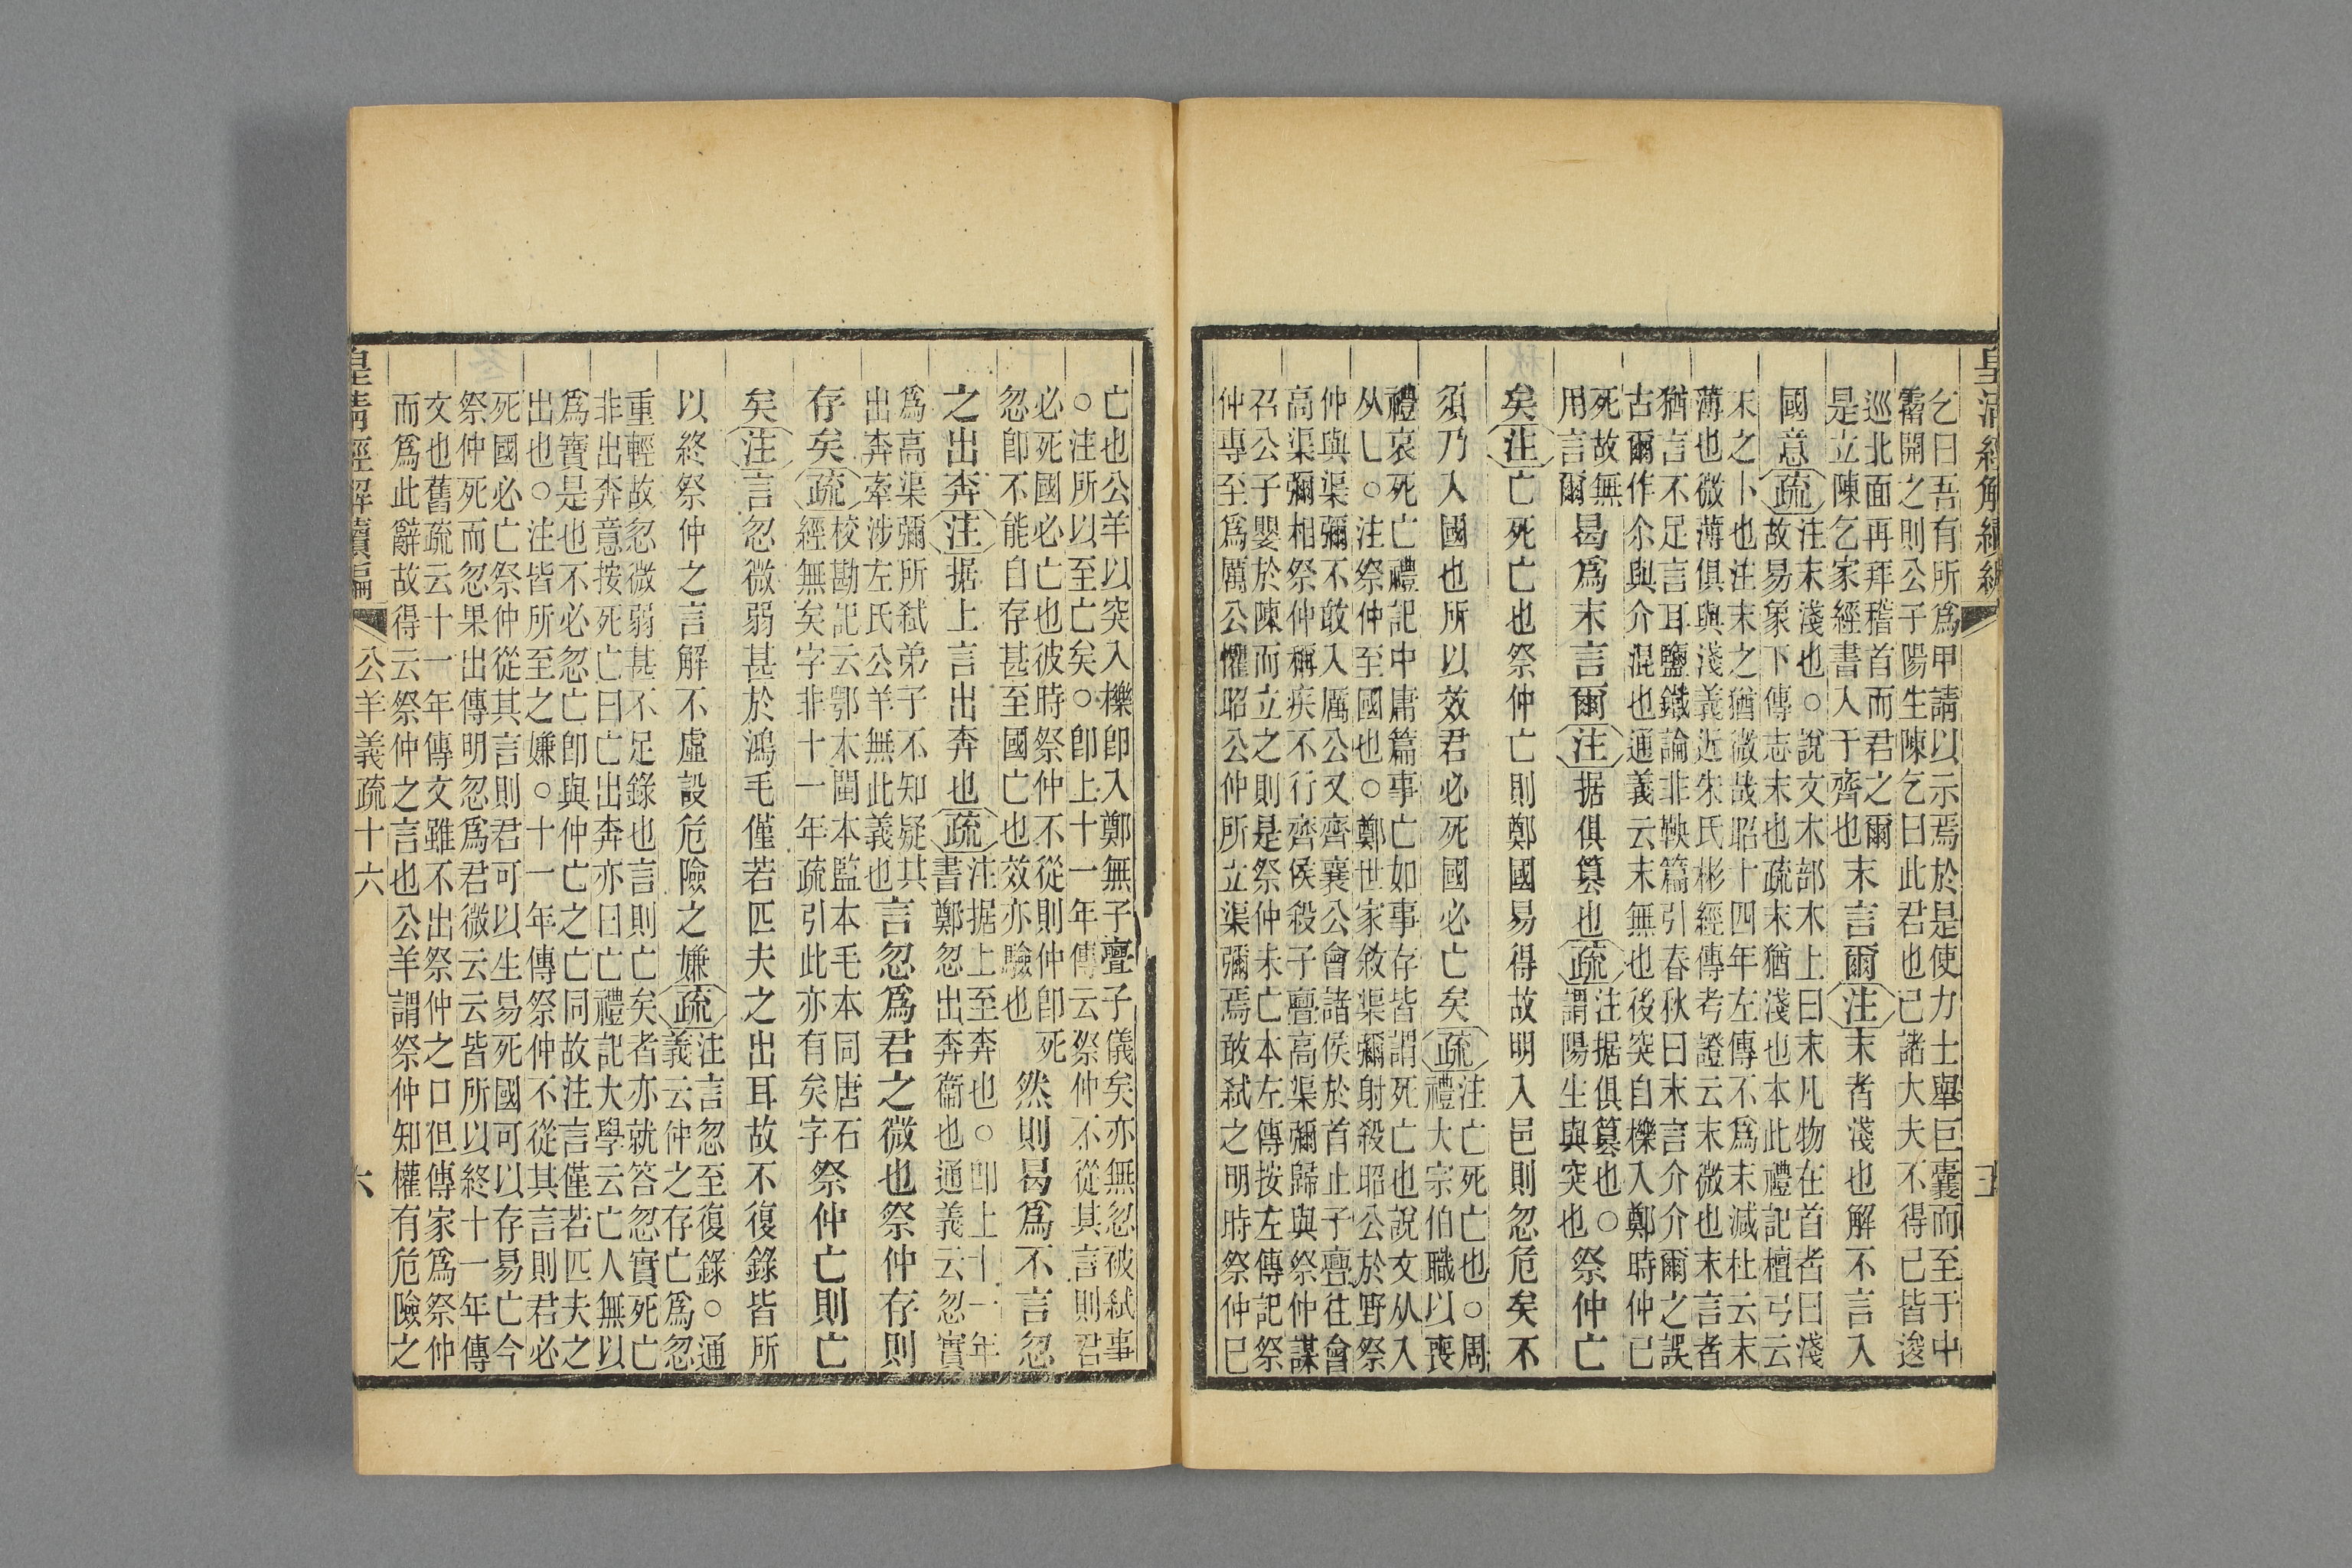 皇清經解續編
乞曰吾有所爲甲請以示焉於是使力士舉巨囊而至于中
霤開之則公子陽生陳乞曰此君也已諸大夫不得已皆逡
巡北面再拜稽首而君之爾
是立陳乞家經書入于齊也
末言爾注末者淺也解不言入
國意疏
注末淺也○說文木部木上曰末凡物在首者曰淺
故易象下傳志末也疏末猶淺也本此禮記檀弓云
末之卜也注末之猶微哉昭十四年左傳不爲末減杜云末
薄也微薄俱與淺義近朱氏彬經傳考證云末微也末言者
猶言不足言耳鹽鐵論非鞅篇引春秋曰末言介介爾之誤
古爾作尒與介混也通義云末無也後突自櫟入鄭時仲已
死故無
用言爾
曷爲末言爾注据俱篡也疏
注据俱篡也○
謂陽生與突也
祭仲亡
矣注亡死亡也祭仲亡則鄭國易得故明入邑則忽危矣不
須乃入國也所以效君必死國必亡矣疏
注亡死亡也○周
禮大宗伯職以喪
禮哀死亡禮記中庸篇事亡如事存皆謂死亡也說文从入
从乚○注祭仲至國也○鄭世家敘渠彌射殺昭公於野祭
仲與渠彌不敢入厲公又齊襄公會諸侯於首止子亹往會
高渠彌相祭仲稱疾不行齊侯殺子亹高渠彌歸與祭仲謀
召公子嬰於陳而立之則是祭仲未亡本左傳按左傳記祭
仲專至爲厲公懼昭公仲所立渠彌焉敢弒之明時祭仲已
亡也公羊以突入櫟卽入鄭無子亹子儀矣亦無忽被弒事
○注所以至亡矣○卽上十一年傳云祭仲不從其言則君
必死國必亡也彼時祭仲不從則仲卽死
忽卽不能自存甚至國亡也效亦驗也
然則曷爲不言忽
之出奔注据上言出奔也疏
注据上至奔也○卽上十一年
書鄭忽出奔衞也通義云忽實
爲高渠彌所弒弟子不知疑其
出奔牽涉左氏公羊無此義也
言忽爲君之微也祭仲存則
存矣疏
校勘記云鄂本閩本監本毛本同唐石
經無矣字非十一年疏引此亦有矣字
祭仲亡則亡
矣注言忽微弱甚於鴻毛僅若匹夫之出耳故不復錄皆所
以終祭仲之言解不虛設危險之嫌疏
注言忽至復錄○通
義云仲之存亡爲忽
重輕故忽微弱甚不足錄也言則亡矣者亦就答忽實死亡
非出奔意按死亡曰亡出奔亦曰亡禮記大學云亡人無以
爲寶是也不必忽亡卽與仲亡之亡同故注言僅若匹夫之
出也○注皆所至之嫌○十一年傳祭仲不從其言則君必
死國必亡祭仲從其言則君可以生易死國可以存易亡今
祭仲死而忽果出傳明忽爲君微云云皆所以終十一年傳
文也舊疏云十一年傳文雖不出祭仲之口但傳家爲祭仲
而爲此辭故得云祭仲之言也公羊謂祭仲知權有危險之
皇清經解續編
公羊義疏十六
六